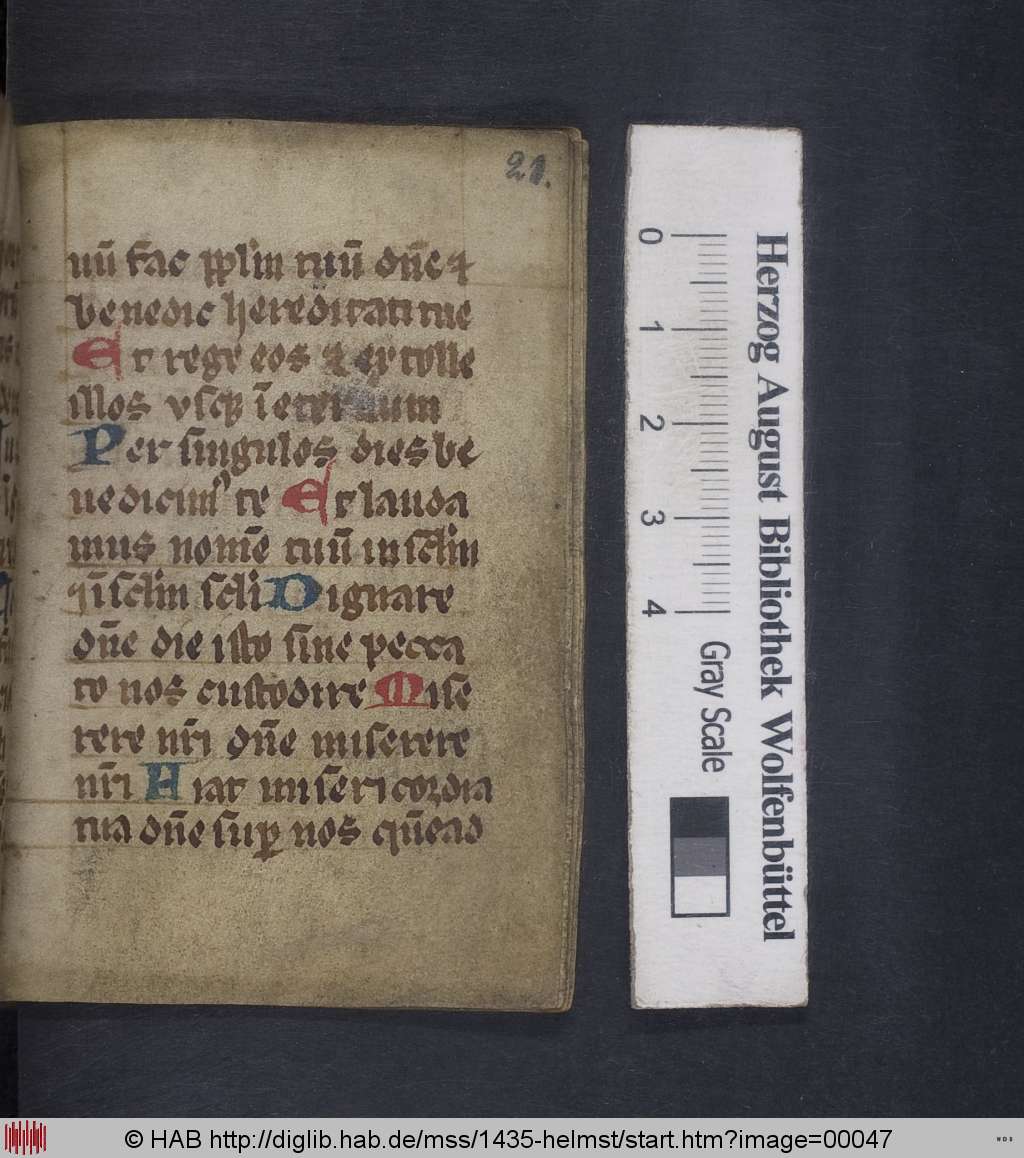 21.
uū fac pplm tuū dn̄e ⁊
benedic hereditati tue
Et rege eos ⁊ extolle
illos vsqꝫ ī eternum
Per singulos dies be
nedicimꝰ te Et lauda
mus nomē tuū in sclm̄
⁊ ī sclm̄ scli Dignare
dn̄e die isto sine pecca
to nos custodire Mise
rere nr̄i dn̄e miserere
nr̄i Fiat misericordia
tua dn̄e suꝑ nos qn̄ead
0
1
2
3
4
Gray Scale
Herzog August Bibliothek Wolfenbüttel
© HAB http://diglib.hab.de/mss/1435-helmst/start.htm?image=00047